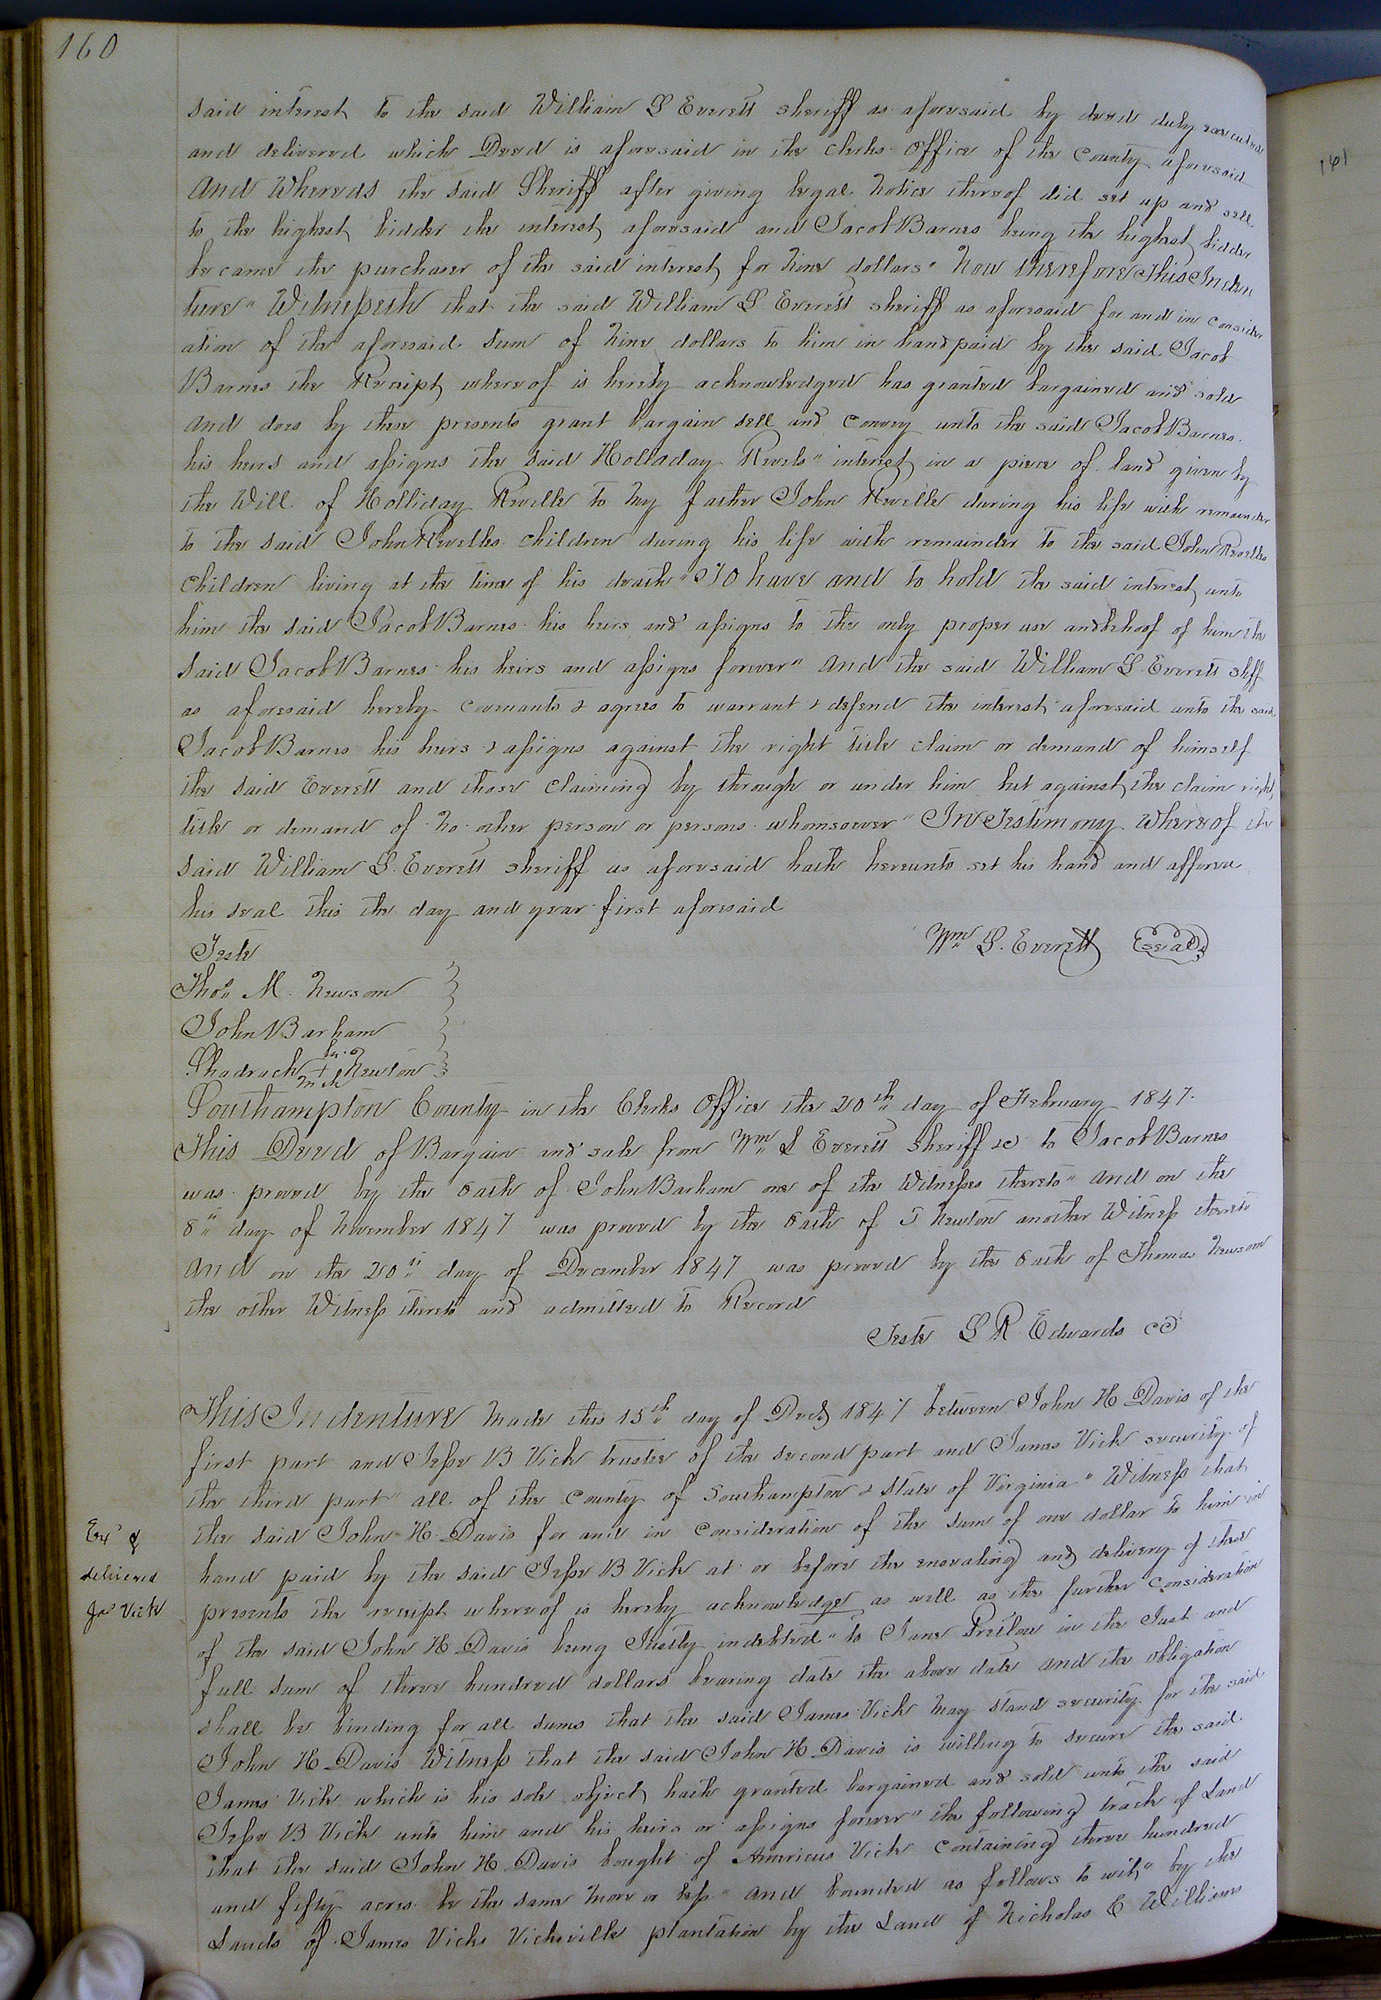 160
said interest to the said William S Everett sheriff as aforesaid by deed duly executed
and delivered which Deed is aforesaid in the clerks office of the county aforesaid
And Whereas the said Sheriff after giving legal notice thereof did set up and sell
to the highest bidder the interest aforesaid and Jacob Barnes being the highest bidder
became the purchaser of the said interest for nine dollars" Now therefore This Inden
ture" Witnesseth that the said William S Everett sheriff as aforesaid for and in consider
ation of the aforesaid sum of nine dollars to him in hand paid by the said Jacob
Barnes the Receipt whereof is hereby acknowledged has granted bargained and sold
and does by these presents grant bargain sell and convey unto the said Jacob Barnes
his heirs and assigns the said Holladay Revels" interest in a piece of land given by
the Will of Holliday Revelle to my father John Revelle during his life with remainder
to the said John Revelles children during his life with remainder to the said John Revelles
children living at the time of his death" To have and to hold the said interest unto
him the said Jacob Barnes his heirs and assigns to the only proper use and behoof of him the
said Jacob Barnes his heirs and assigns forever" And the said William S. Everett shff
as aforesaid hereby covenants & agrees to warrant & defend the interest aforesaid unto the said
Jacob Barnes his heirs & assigns against the right title claim or demand of himself
the said Everett and those claiming by through or under him but against the claim right
title or demand of no other person or persons whomsoever" In Testimony Whereof the
said William S. Everett sheriff as aforesaid hath hereunto set his hand and affixed
his seal this the day and year first aforesaid
Wm S. Everett (seal)
Teste
Thos M. Newsom
John Barham
his
Shadrach + Newton
mark
Southampton County in the Clerks Office the 20th day of February 1847.
This Deed of Bargain and sale from Wm S Everett sheriff &c to Jacob Barnes
was proved by the oath of John Barham one of the Witnesses thereto" and on the
8th day of November 1847 was proved by the oath of S Newton another Witness thereto
And on the 20th day of December 1847 was proved by the oath of Thomas Newsom
the other Witness thereto and admitted to Record
Teste L R Edwards cc
This Indenture made this 15th day of Decr 1847 between John H Davis of the
first part and Jesse B Vick trustee of the second part and James Vick security of
the third part" all of the County of Southampton & State of Virginia" Witness that
the said John H. Davis for and in consideration of the sum of one dollar to him in
hand paid by the said Jesse B Vick at or before the ensealing and delivery of these
presents the receipt whereof is hereby acknowledge as well as the further consideration
of the said John H Davis being Justly indebted" to Jane Pretlow in the Just and
full sum of three hundred dollars bearing date the above date and the obligation
shall be binding for all sums that the said James Vick may stand security for the said
John H Davis Witness that the said John H Davis is willing to secure the said
James Vick which is his sole object hath granted bargained and sold unto the said
Jesse B Vick unto him and his heirs or assigns forever" the following track of Land
that the said John H Davis bought of Americus Vick containing three hundred
and fifty acres be the same more or less" and bounded as follows to wit" by the
Lands of James Vicks Vicksville plantation by the Land of Nicholas C Williams
Exd &
delivered
Jas Vick
161